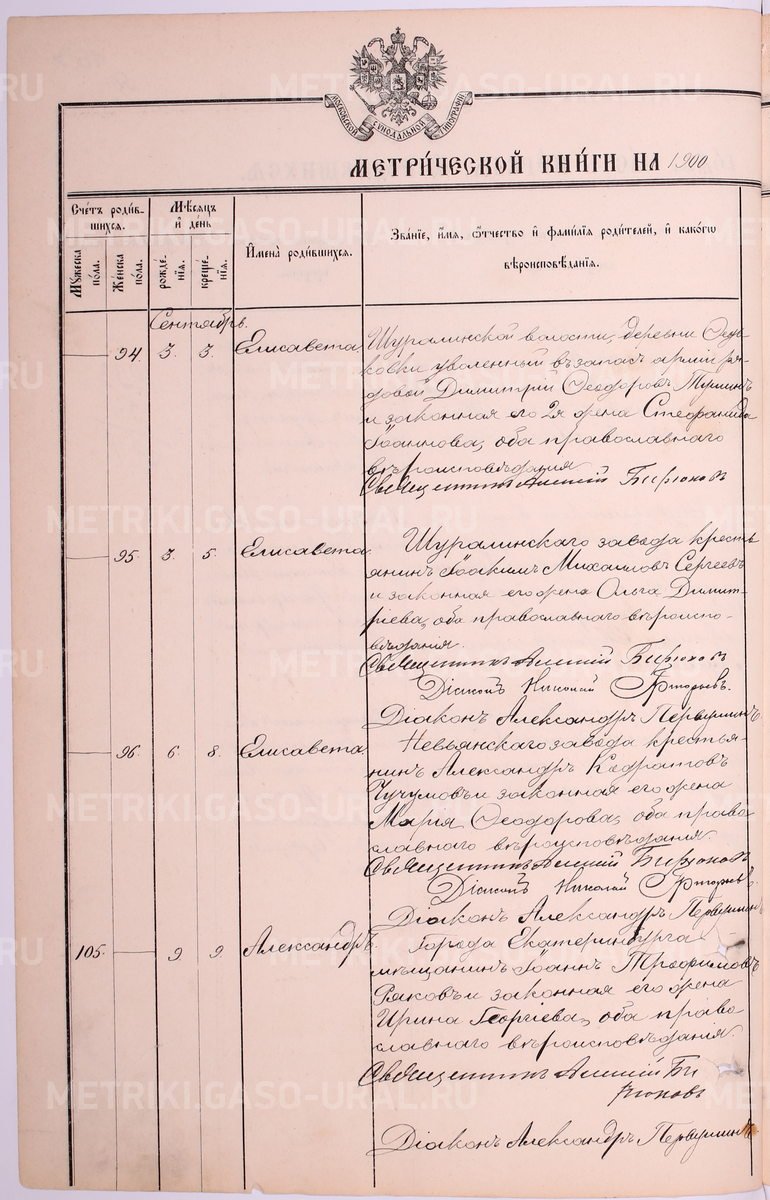 МОСКОВСКОЙ СУНОДАЛЬНОЙ ТИПОГРАФІИ
МЕТРИ́ЧЕСКОЙ КНИ́ГИ НА 1900
Счетъ роди́в-
шихся.
Мꙋжеска по́ла.
Же́нска по́ла.
Мѣ́сяцъ
и҆ де́нь
рожде́-
нїѧ.
креще́-
нїѧ.
И҆мена̀ роди́вшихся.
Зва́нїе, и҆́мѧ, ѻ҆́тчество и҆ фами́лїѧ роди́телей, и҆ како́гѡ
вѣроисповѣ́данїѧ.
Сентябрь.
94. 3. 3. Елисавета. Шуралинской волости, деревни
уволенный въ запасъ арміи ря-
довой Димитрій Ѳеодоровъ
и законная его 2я жена Стефанида
Іоаннова, оба православнаго
вѣроисповѣданія
Священникъ Алексій Бирюковъ
95. 3. 5. Елисавета. Шуралинскаго завода кресть-
янинъ Іоакимъ Михаиловъ Сергеевъ
и законная его жена Ольга Димит-
ріева, оба православнаго вѣроиспо-
вѣданія.
Священникъ Алексій Бирюковъ
Діаконъ Николай Григорьевъ.
Діаконъ Александръ Первушинъ
96. 6. 8. Елисавета. Невьянскаго завода крестья-
нинъ Александръ
Чучумовъ и законная его жена
Марія Ѳеодорова, оба право
славнаго вѣроисповѣданія.
Священникъ Алексій Бирюковъ
Діаконъ Николай Григорьевъ
Діаконъ Александръ Первушинъ
105. 9 9. Александръ. Города Екатеринбурга
мѣщанинъ Іоаннъ Трофимовъ
и законная его жена
Ирина Георгіева, оба право
славнаго вѣроисповѣданія.
Священникъ Алексій Би
рюковъ
Діаконъ Александръ Первушинъ
METRIKI.GASO-URAL.RU